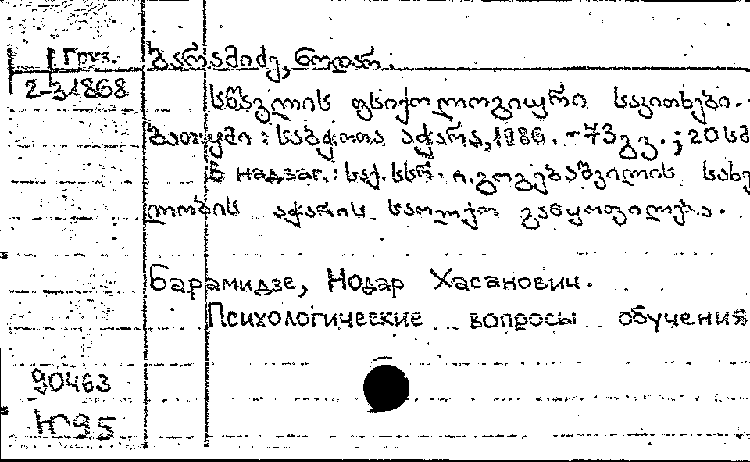 Груз.
2-31868
ბარამიძე, ნოდარ.
სწავლის ფსიქოლოგიური საკითხები. -
ბათუმი : საბჭოთა აჭარა, 1986. - 73გვ. ; 20სმ
В надзаг. : საქ. სსრ. ი. გოგებაშვილის სახე
ლობის აჭარის საოლქო განყოფილება.
Барамидзе, Нодар Хасанович.
Психологические вопросы обучения
90463
№95